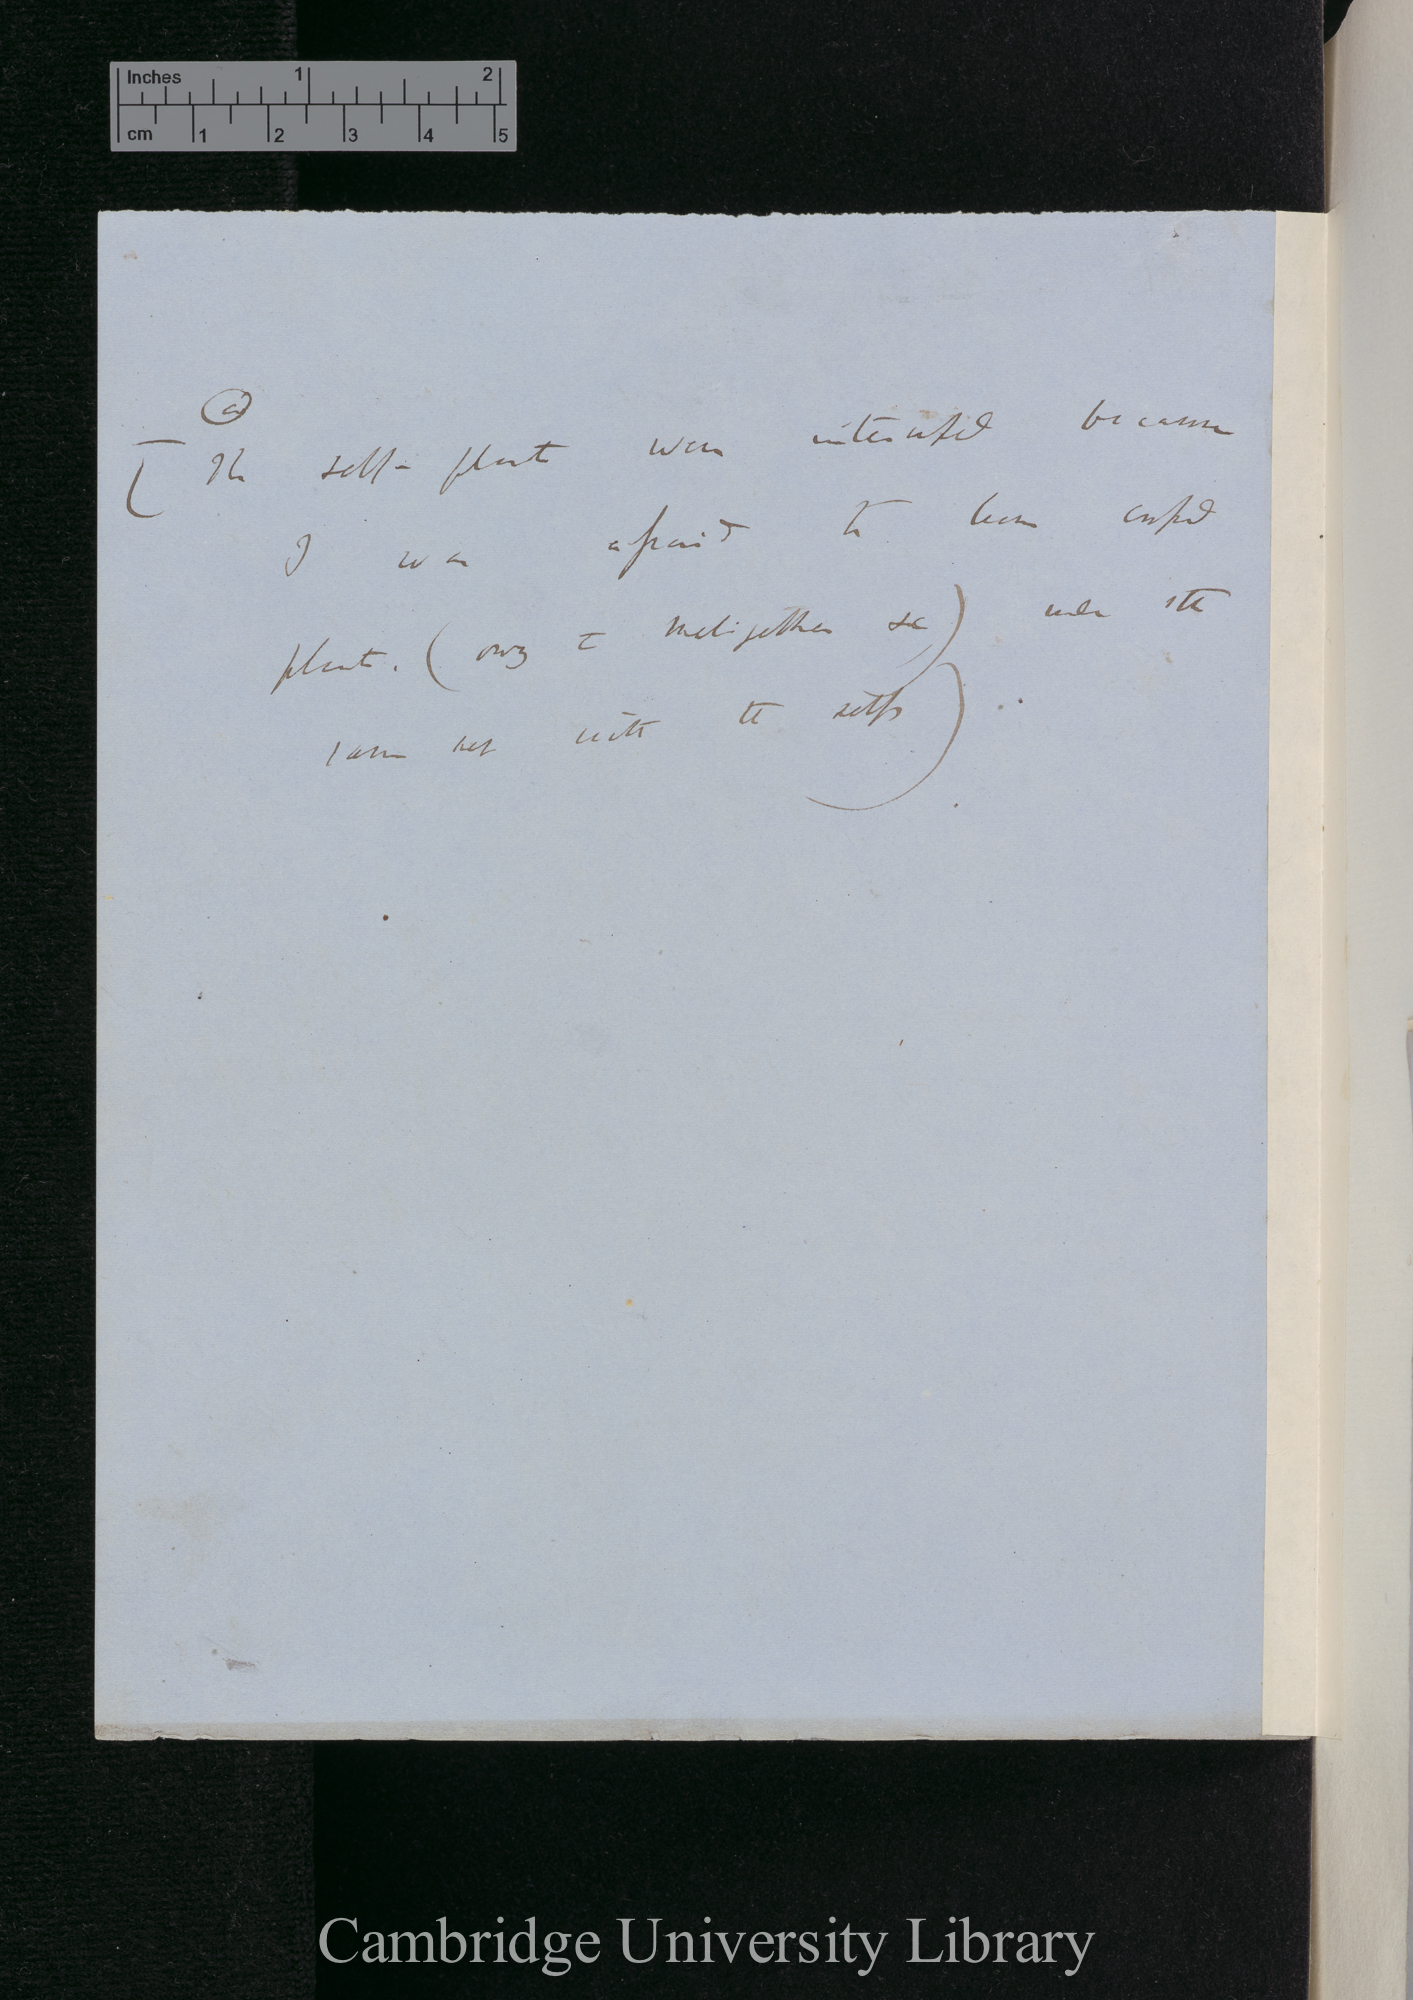 Inches 1 2
cm 1 2 3 4 5
(a)
( The self-plants were intercrossed because
I was afraid to leave crossed
plants. (owing to Meligethes &c) under the
same net with the selfs)
Cambridge University Library